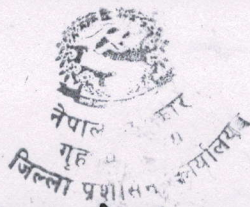 नेपाल सरकार
गृह
जिल्ला प्रशासन कार्यालय